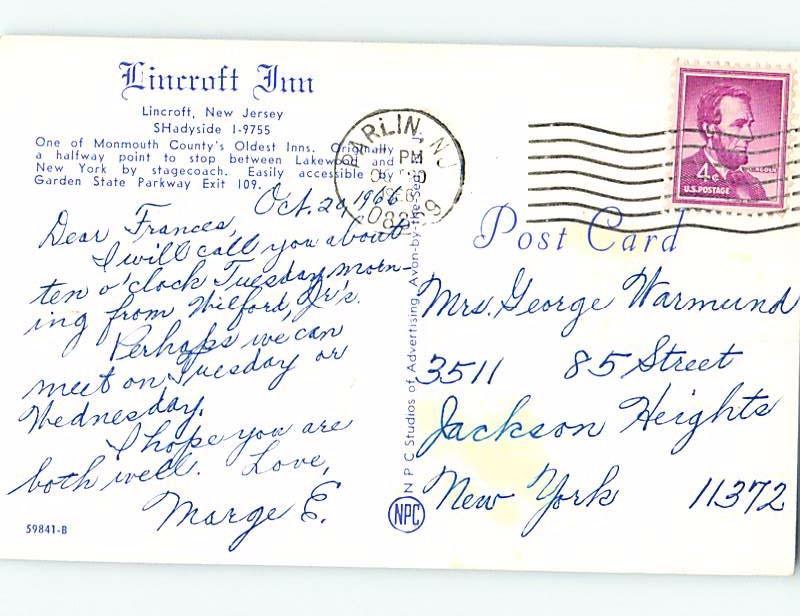 Lincroft Inn
Lincroft, New Jersey
SHadyside 1-9755
One of Monmouth County's Oldest Inns. Originally
a halfway point to stop between Lakewood and
New York by stagecoach. Easily accessible by
Garden State Parkway Exit 109.
Oct. 20, 1966
Dear Frances,
I will call you about
ten o'clock Tuesday morn-
ing from Wilford, Jr's.
Perhaps we can
meet on Tuesday or
Wednesday.
I hope you are
both well. Love,
Marge E.
59841-B
NPC Studios of Advertising, Avon-by-the-Sea, N.J.
NPC
PARLIN, NJ
PM
1966
4¢
LINCOLN
U.S. POSTAGE
Post Card
Mrs. George Warmund
3511 85 Street
Jackson Heights
New York 11372